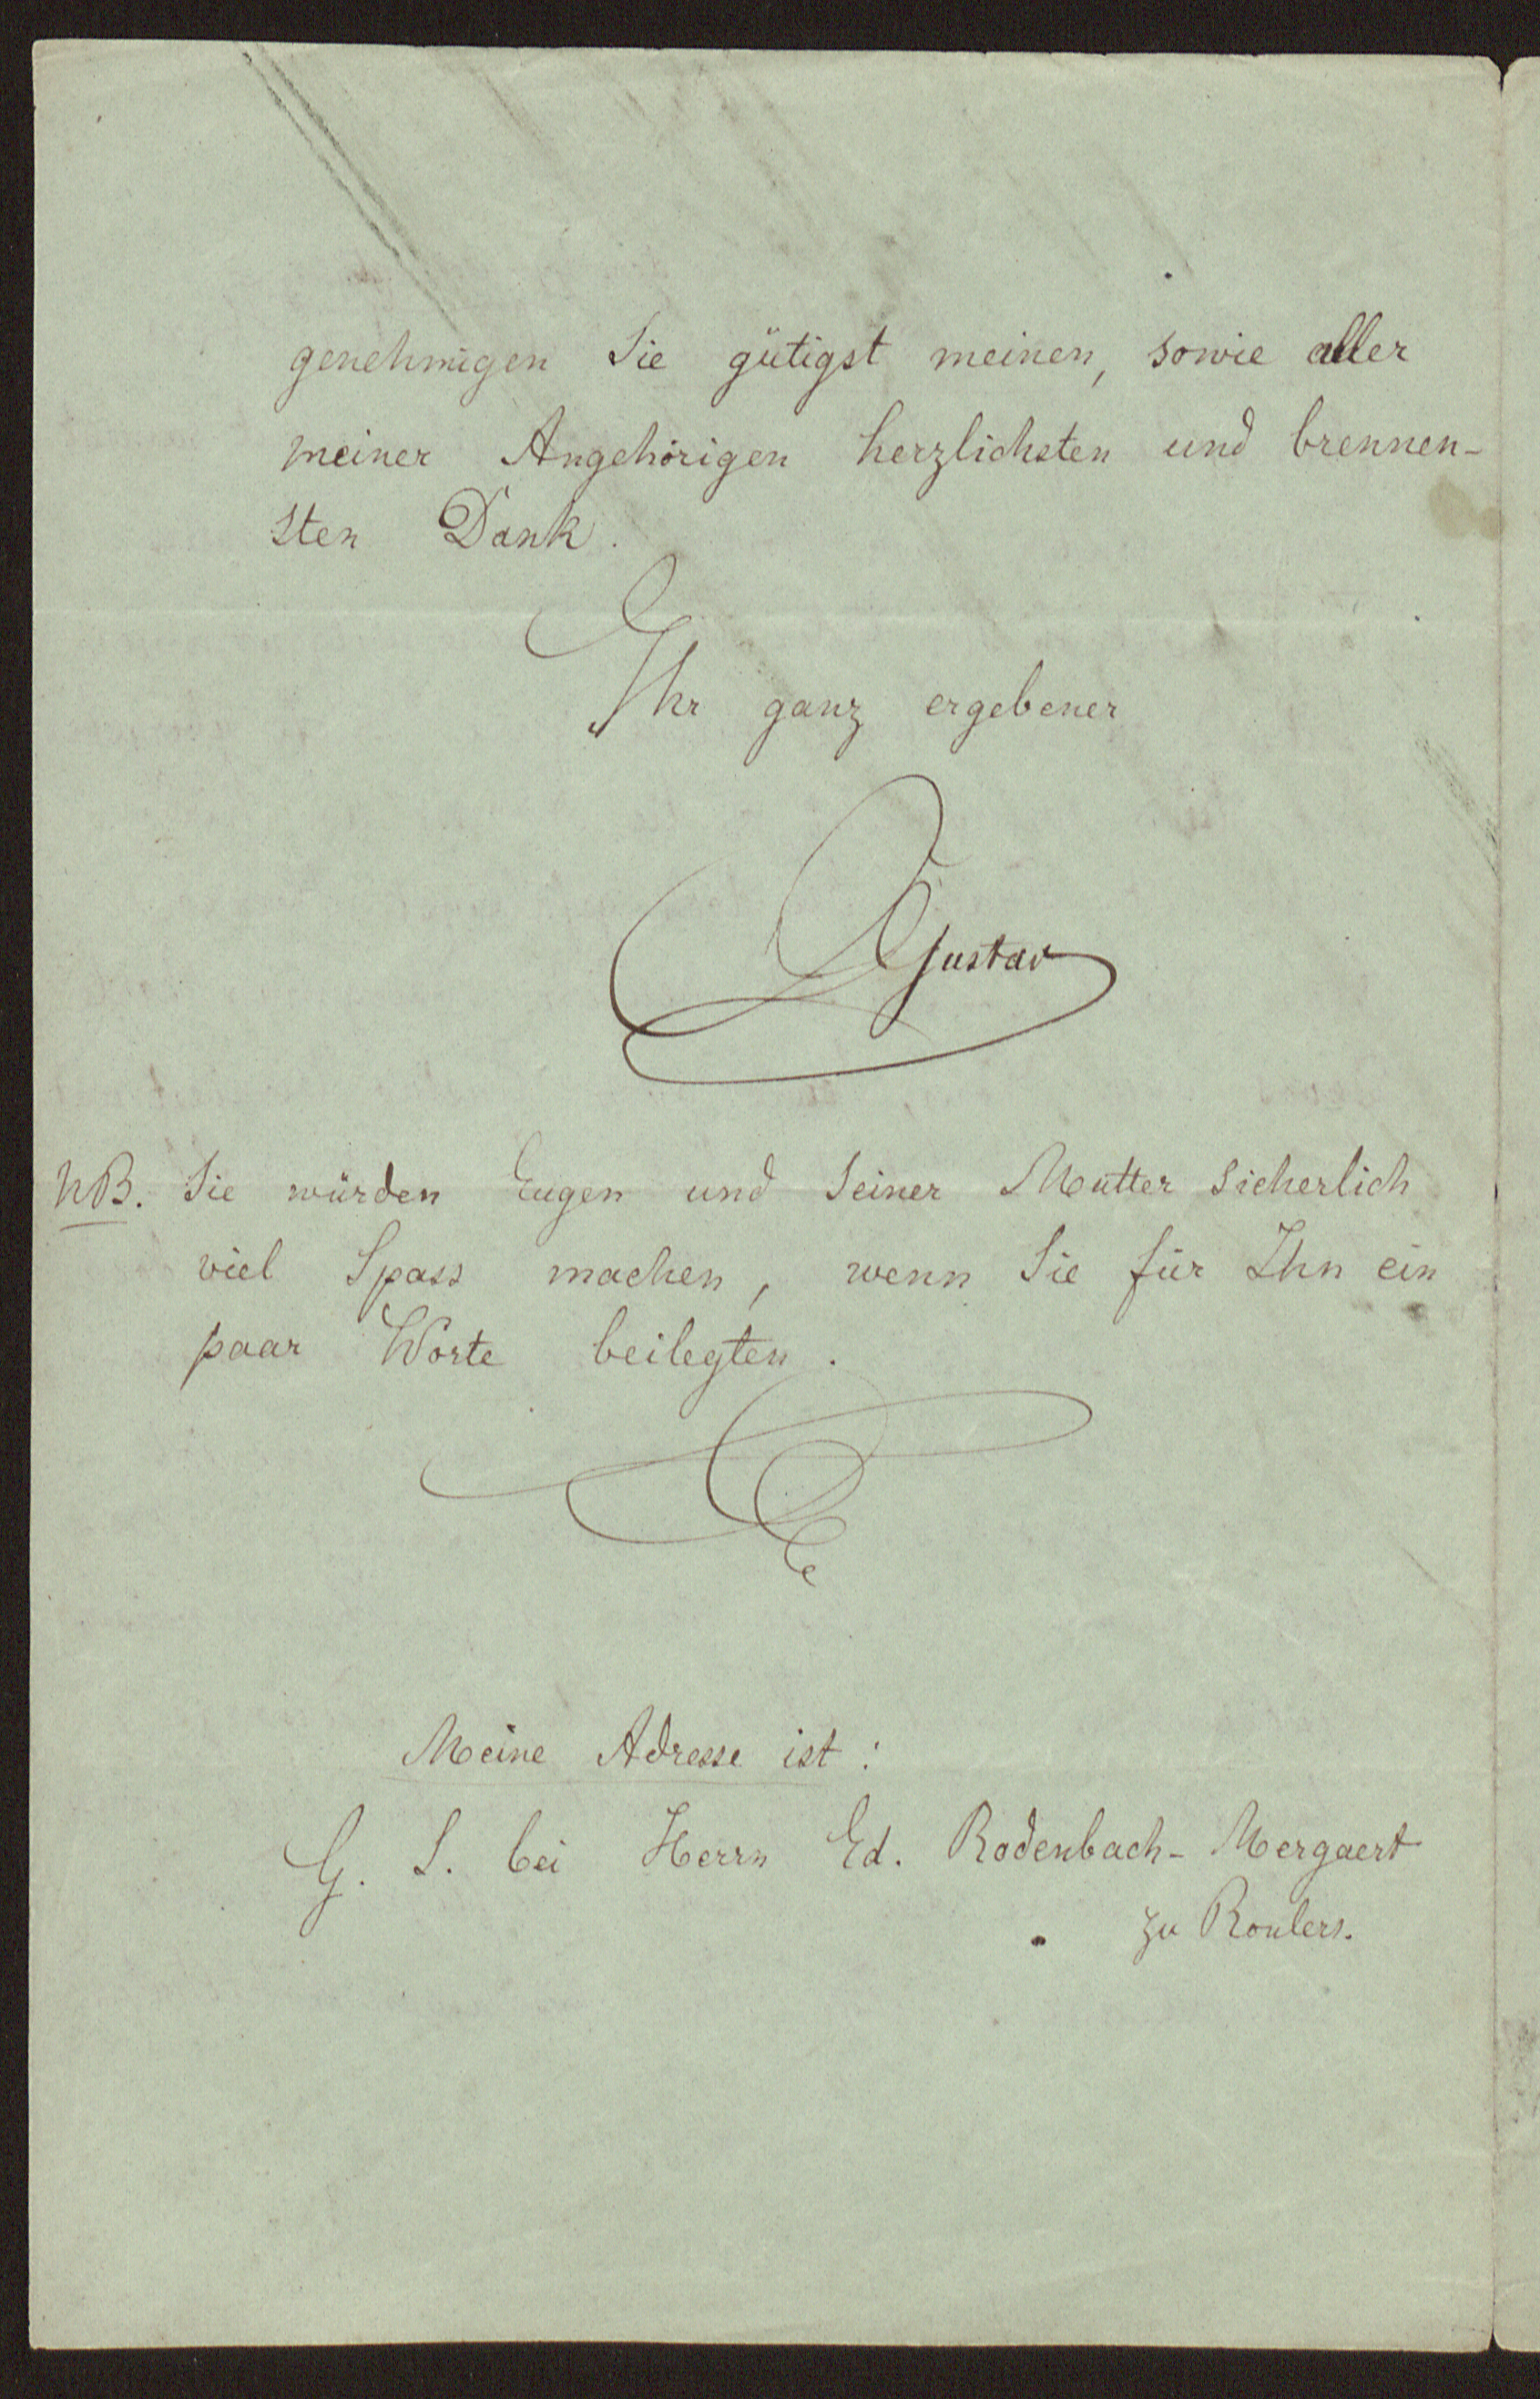 genehmigen Sie gütigst meinen, sowie aller
meiner Angehörigen herzlichsten und brennen-
sten Dank.
Ihr ganz ergebener
Gustav
NB. Sie würden Eugen und Seiner Mutter sicherlich
viel Spass machen, wenn Sie für Ihn ein
paar Worte beilegten.
Meine Adresse ist:
G. S. bei Herrn Ed. Rodenbach-Mergaert
zu Roulers.